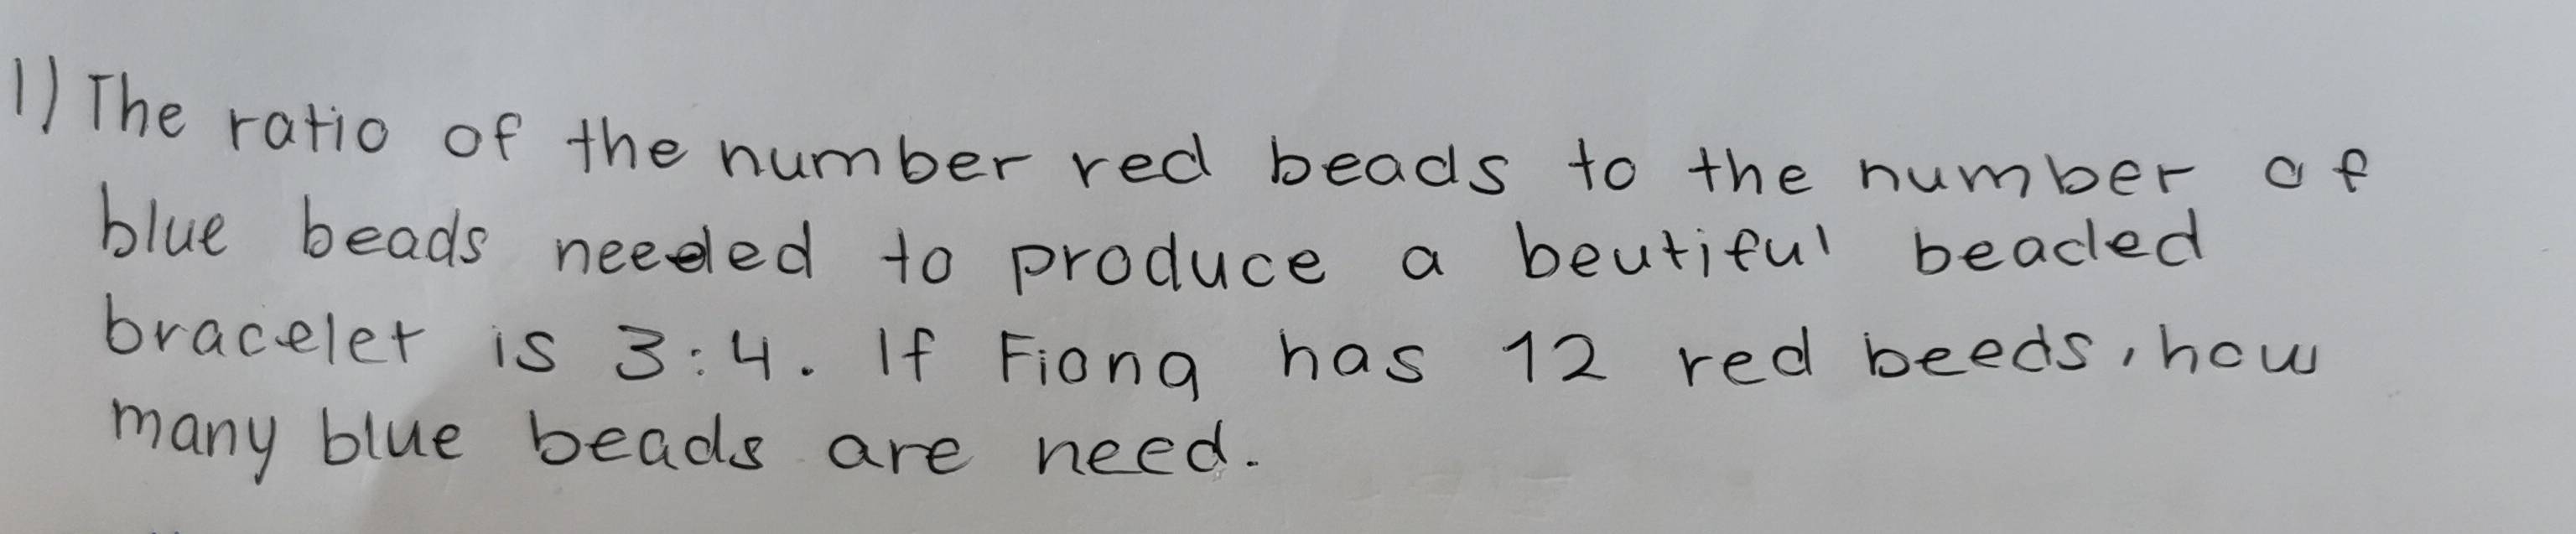 1) The ratio of the number red beads to the number of
blue beads needed to produce a beutiful beaded
bracelet is 3:4. If Fiona has 12 red beeds, how
many blue beads are need.